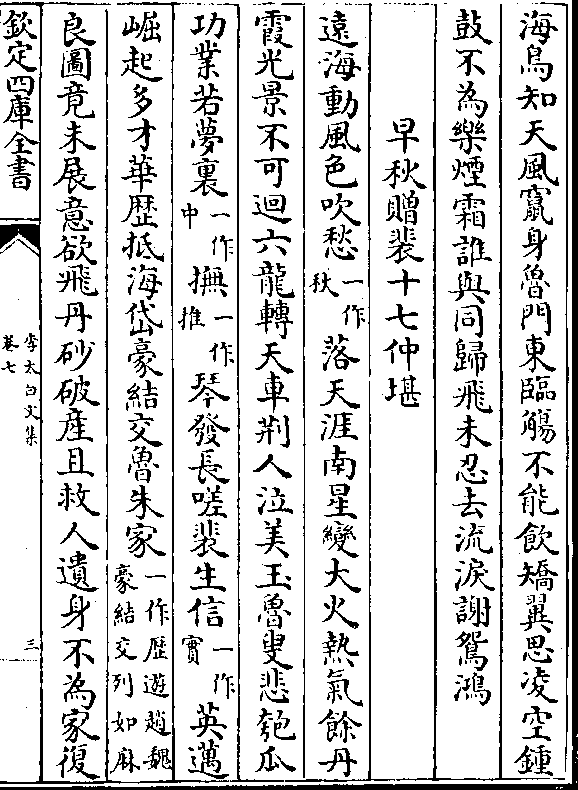 海鳥知天風竄身魯門東臨觴不能飲矯翼思凌空鍾
鼓不為樂煙霜誰與同歸飛未忍去流淚謝鴛鴻
早秋贈裴十七仲堪
遠海動風色吹愁一作秋落天涯南星變大火熱氣餘丹
霞光景不可迴六龍轉天車荆人泣美玉魯叟悲匏瓜
功業若夢裏一作中撫一作推琴發長嗟裴生信一作實英邁
崛起多才華歴抵海岱豪結交魯朱家一作歴遊趙魏豪結交列如麻
良圖竟未展意欲飛丹砂破産且救人遺身不為家復
欽定四庫全書
李太白文集
卷七
三